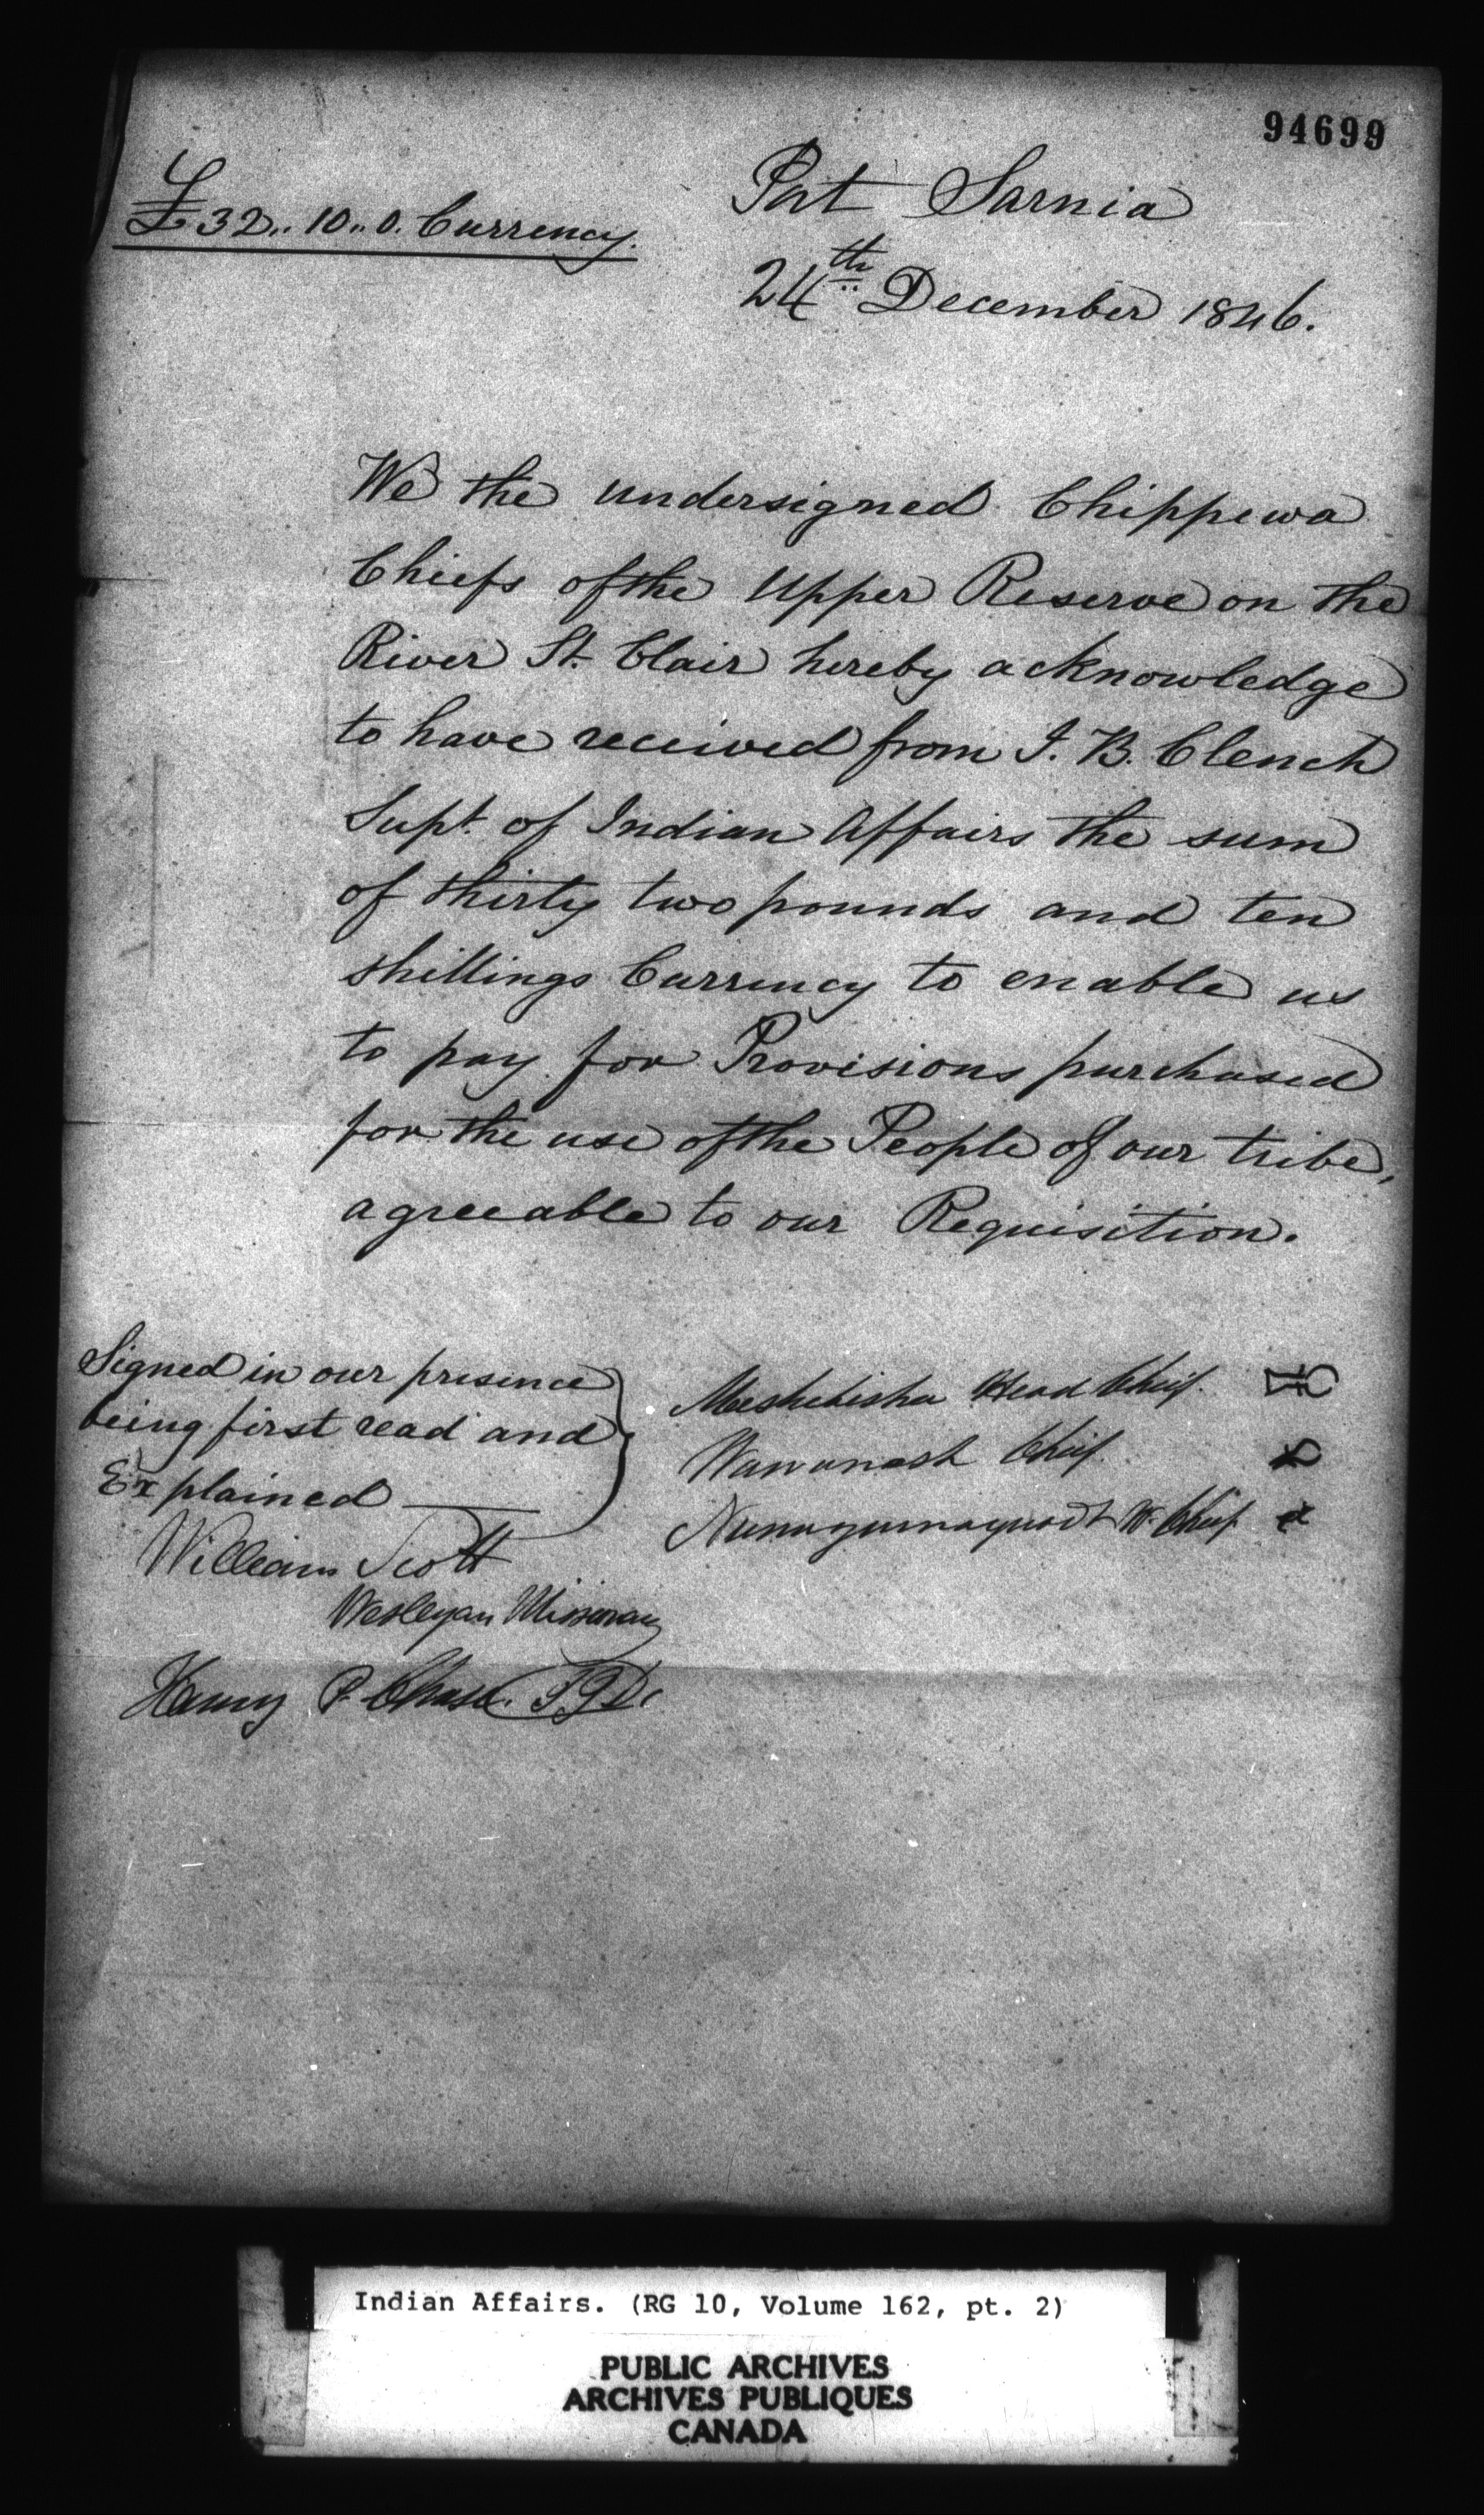 94699
£32.. 10.. 0. Currency.
Port Sarnia
24th December 1846.
We the undersigned Chippewa
Chiefs of the Upper Reserve on the
River St. Clair hereby acknowledge
to have received from J. B. Clench
Supt. of Indian Affairs the sum
of thirty two pounds and ten
shillings Currency to enable us
to pay for Provisions purchased
for the use of the People of our tribe,
agreeable to our Requisition.
Signed in our presence
being first read and
Explained
William Scott
Wesleyan Missionary
Henry P. Chase
Head Chief.
Wawanosh Chief.
W. Chief
Indian Affairs. (RG 10, Volume 162, pt. 2)
PUBLIC ARCHIVES
ARCHIVES PUBLIQUES
CANADA